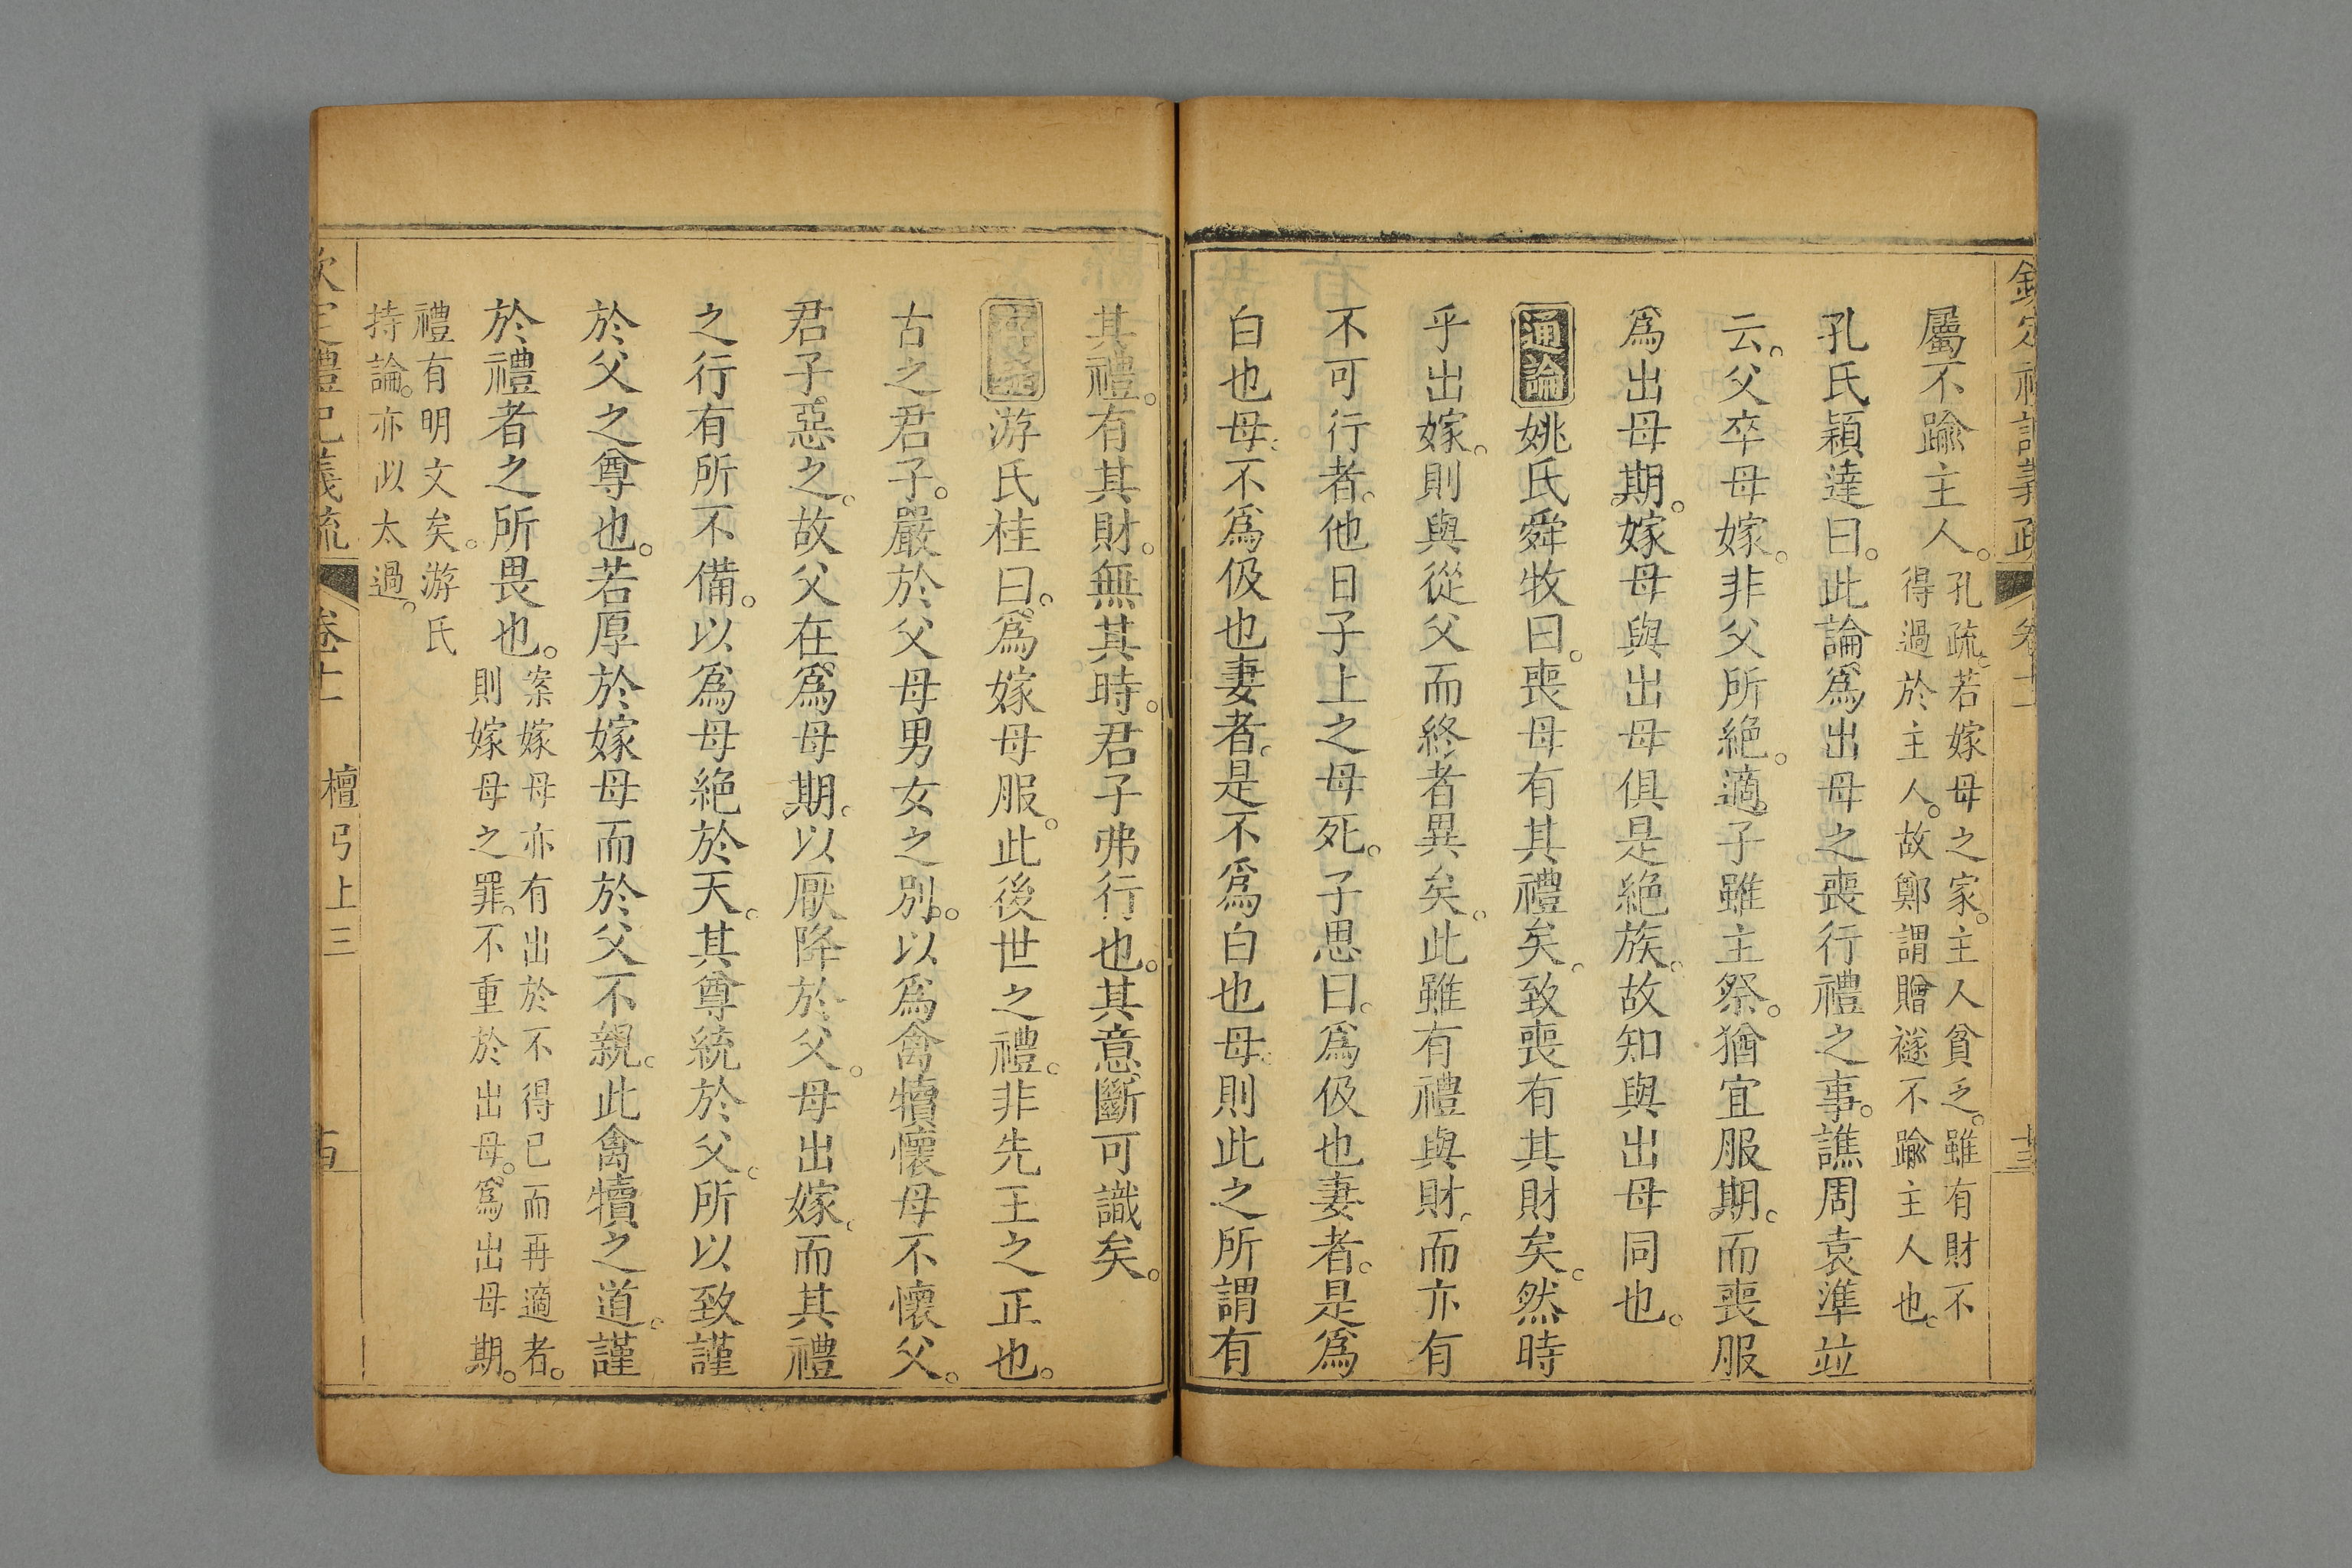 欽定禮記義疏 卷十一 十三
屬不踰主人。孔疏。若嫁母之家。主人貧乏。雖有財不
得過於主人。故鄭謂贈襚不踰主人也。
孔氏穎達曰。此論爲出母之喪行禮之事。譙周袁準竝
云。父卒母嫁。非父所絶。適子雖主祭。猶宜服期。而喪服
爲出母期。嫁母與出母俱是絶族。故知與出母同也。
通論姚氏舜牧曰。喪母有其禮矣。致喪有其財矣。然時
乎出嫁。則與從父而終者異矣。此雖有禮與財。而亦有
不可行者。他日子上之母死。子思曰。爲伋也妻者。是爲
白也母。不爲伋也妻者。是不爲白也母。則此之所謂有
其禮。有其財。無其時。君子弗行也。其意斷可識矣。
游氏桂曰。爲嫁母服。此後世之禮。非先王之正也。
古之君子。嚴於父母男女之別。以爲禽犢懷母不懷父。
君子惡之。故父在。爲母期。以厭降於父。母出嫁。而其禮
之行有所不備。以爲母絶於天。其尊統於父。所以致謹
於父之尊也。若厚於嫁母而於父不親。此禽犢之道。謹
於禮者之所畏也。案嫁母亦有出於不得已而再適者。
則嫁母之罪。不重於出母。爲出母期。
禮有明文矣。游氏
持論。亦以太過。
欽定禮記義疏 卷十一 檀弓上三